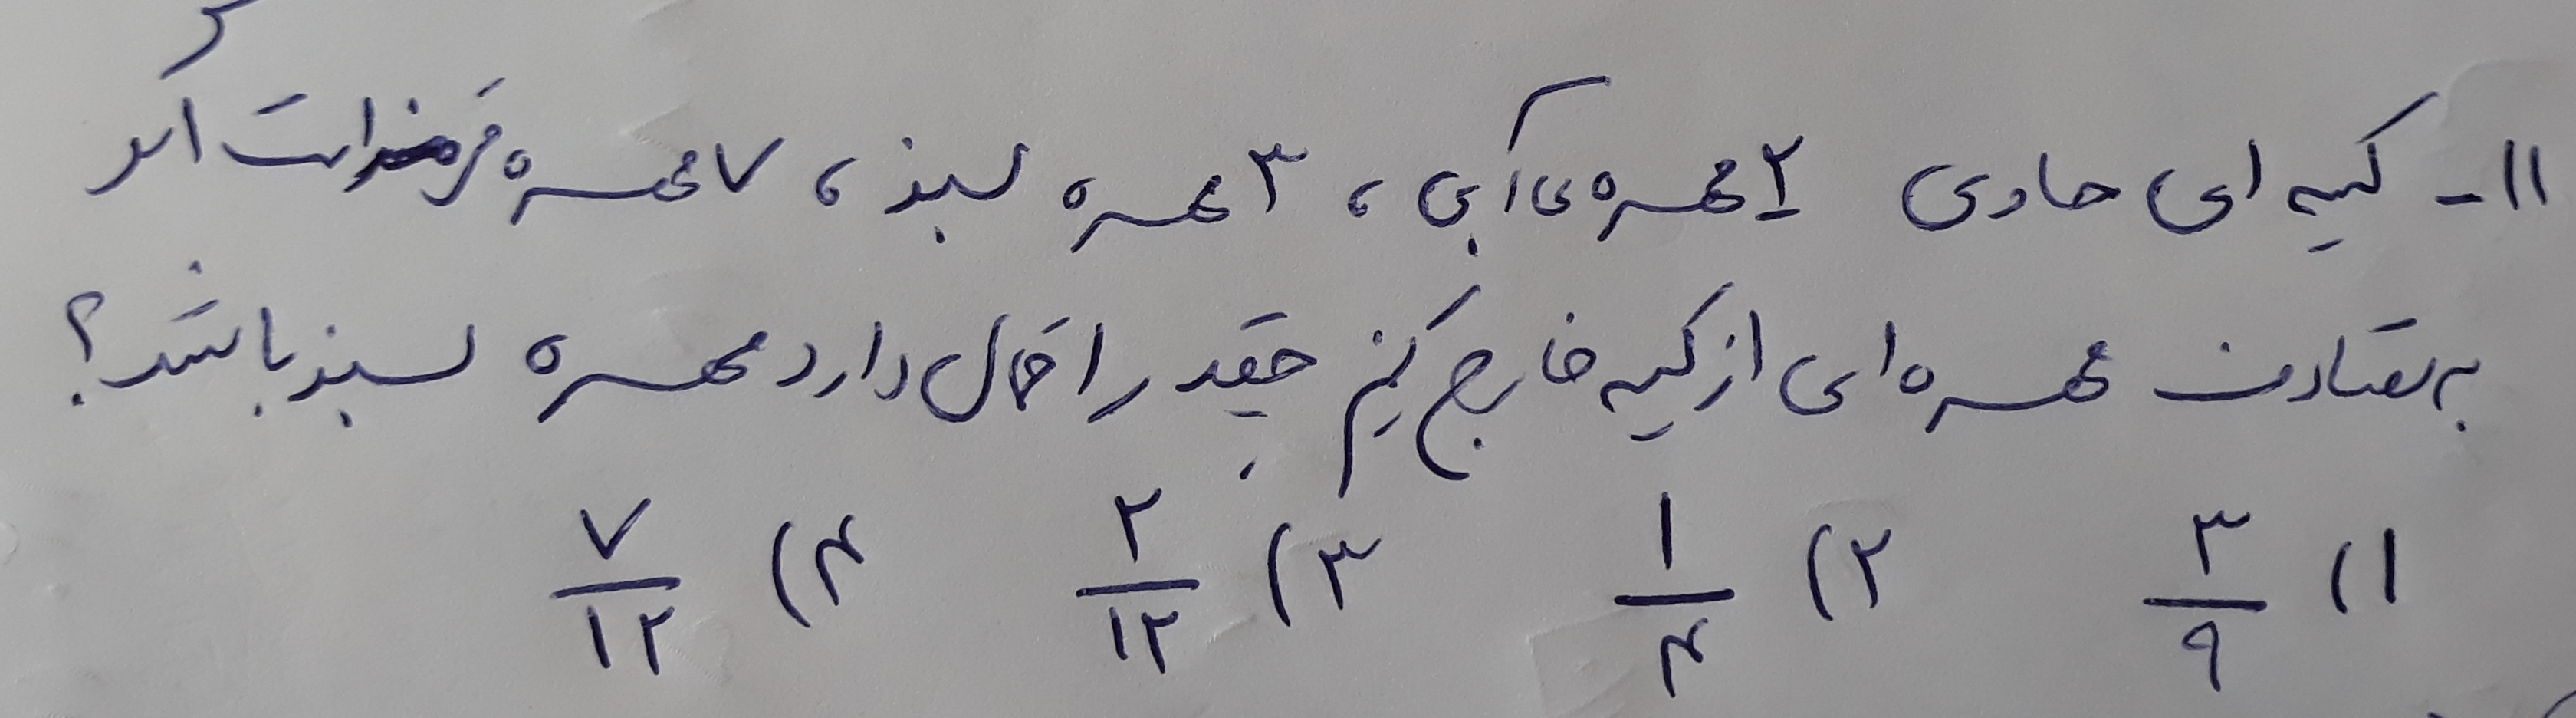 ۱۱- کیسه ای حاوی ۲ مهره ی آبی ، ۳ مهره سبز ، ۷ مهره قرمز است اگر
به تصادف مهره ای از کیسه خارج کنیم چقدر احتمال دارد مهره سبز باشد؟
۱) ۳/۹ ۲) ۱/۴ ۳) ۲/۱۲ ۴) ۷/۱۲